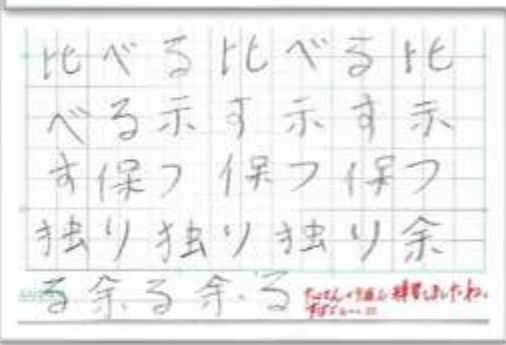 比べる比べる比
べる示す示す示
す保つ保つ保つ
独り独り独り余
る余る余る
たくさんくり返し練習しましたね。